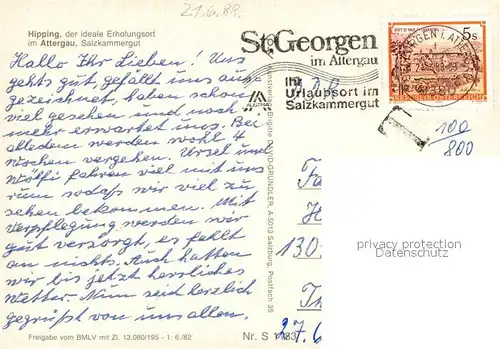 21.6.88.
Hipping, der ideale Erholungsort
im Attergau, Salzkammergut
Hallo Ihr Lieben! Uns
gehts gut, gefällt uns aus-
gezeichnet, haben schon
viel gesehen und noch
mehr erwartet uns. Bei
alledem werden wohl 4
Wochen vergehen. Ursel und
Wölfi fahren viel mit uns
rum sodaß wir viel zu
sehen bekommen. Mit
Verpflegung werden wir
gut versorgt, es fehlt
an nichts. Auch hatten
wir bis jetzt herrliches
Wetter. Nun seid herzlich
gegrüßt von uns allen.
Freigabe vom BMLV mit Zl. 13.080/195 - 1. 6./82
Brigitte DAVID-GRÜNDLER, A-5013 Salzburg, Postfach 35
St. Georgen
im Attergau
Ihr
Urlaubsort im
Salzkammergut
5s
GEORGEN I. ATTERG
100
800
privacy protection
Datenschutz
130
Nr. S
27.6